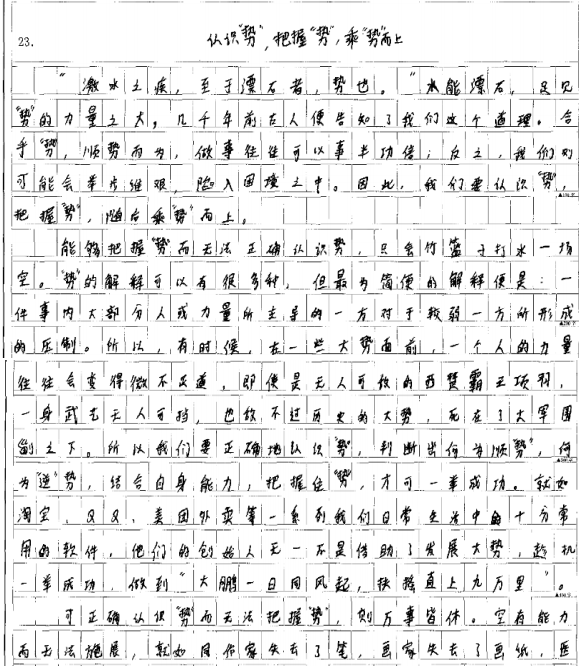 23.
认识"势",把握"势",乘"势"而上
"激水之疾,至于漂石者,势也。"水能漂石,足见
"势"的力量之大,几千年前古人便告知了我们这个道理。合
乎"势",顺势而为,做事往往可以事半功倍;反之,我们则
可能会举步维艰,陷入困境之中。因此,我们要认识"势",
把握"势",随后乘"势"而上。
能够把握"势"而无法正确认识势,只会竹篮子打水一场
空。"势"的解释可以有很多种,但最为简便的解释便是:一
件事内大部分人或力量所主导的一方对于较弱一方所形成
的压制。所以,有时候,在一些大势面前,一个人的力量
往往会变得微不足道,即便是无人可敌的西楚霸王项羽,
一身武艺无人可挡,也敌不过历史的大势,死在了大军围
剿之下。所以我们要正确地认识"势",判断出何为"顺势",何
为"逆"势,结合自身能力,把握住"势",才可一举成功。就如
淘宝、QQ、美团外卖等一系列我们日常生活中的十分常
用的软件,他们的创始人无一不是借助了发展大势,趁机
一举成功,做到"大鹏一日同风起,扶摇直上九万里"。
可正确认识"势"而无法把握"势",则万事皆休。空有能力
而无法施展,就如同作家失去了笔,画家失去了画纸,医